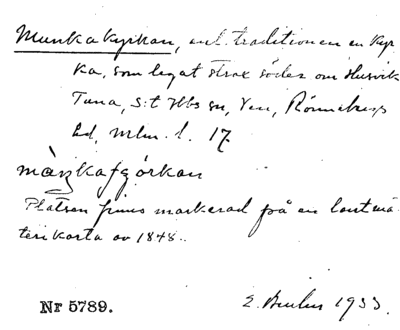 Munkakyrkan, enl. traditionen en kyr
ka, som legat strax söder om Husvik
Tuna, S:t Ibbs sn, Ven, Rönnebergs
hd, Mlm. l. 17.
Platsen finns markerad på en lantmä-
terikarta av 1848.
Nr 5789.
E. 1933.